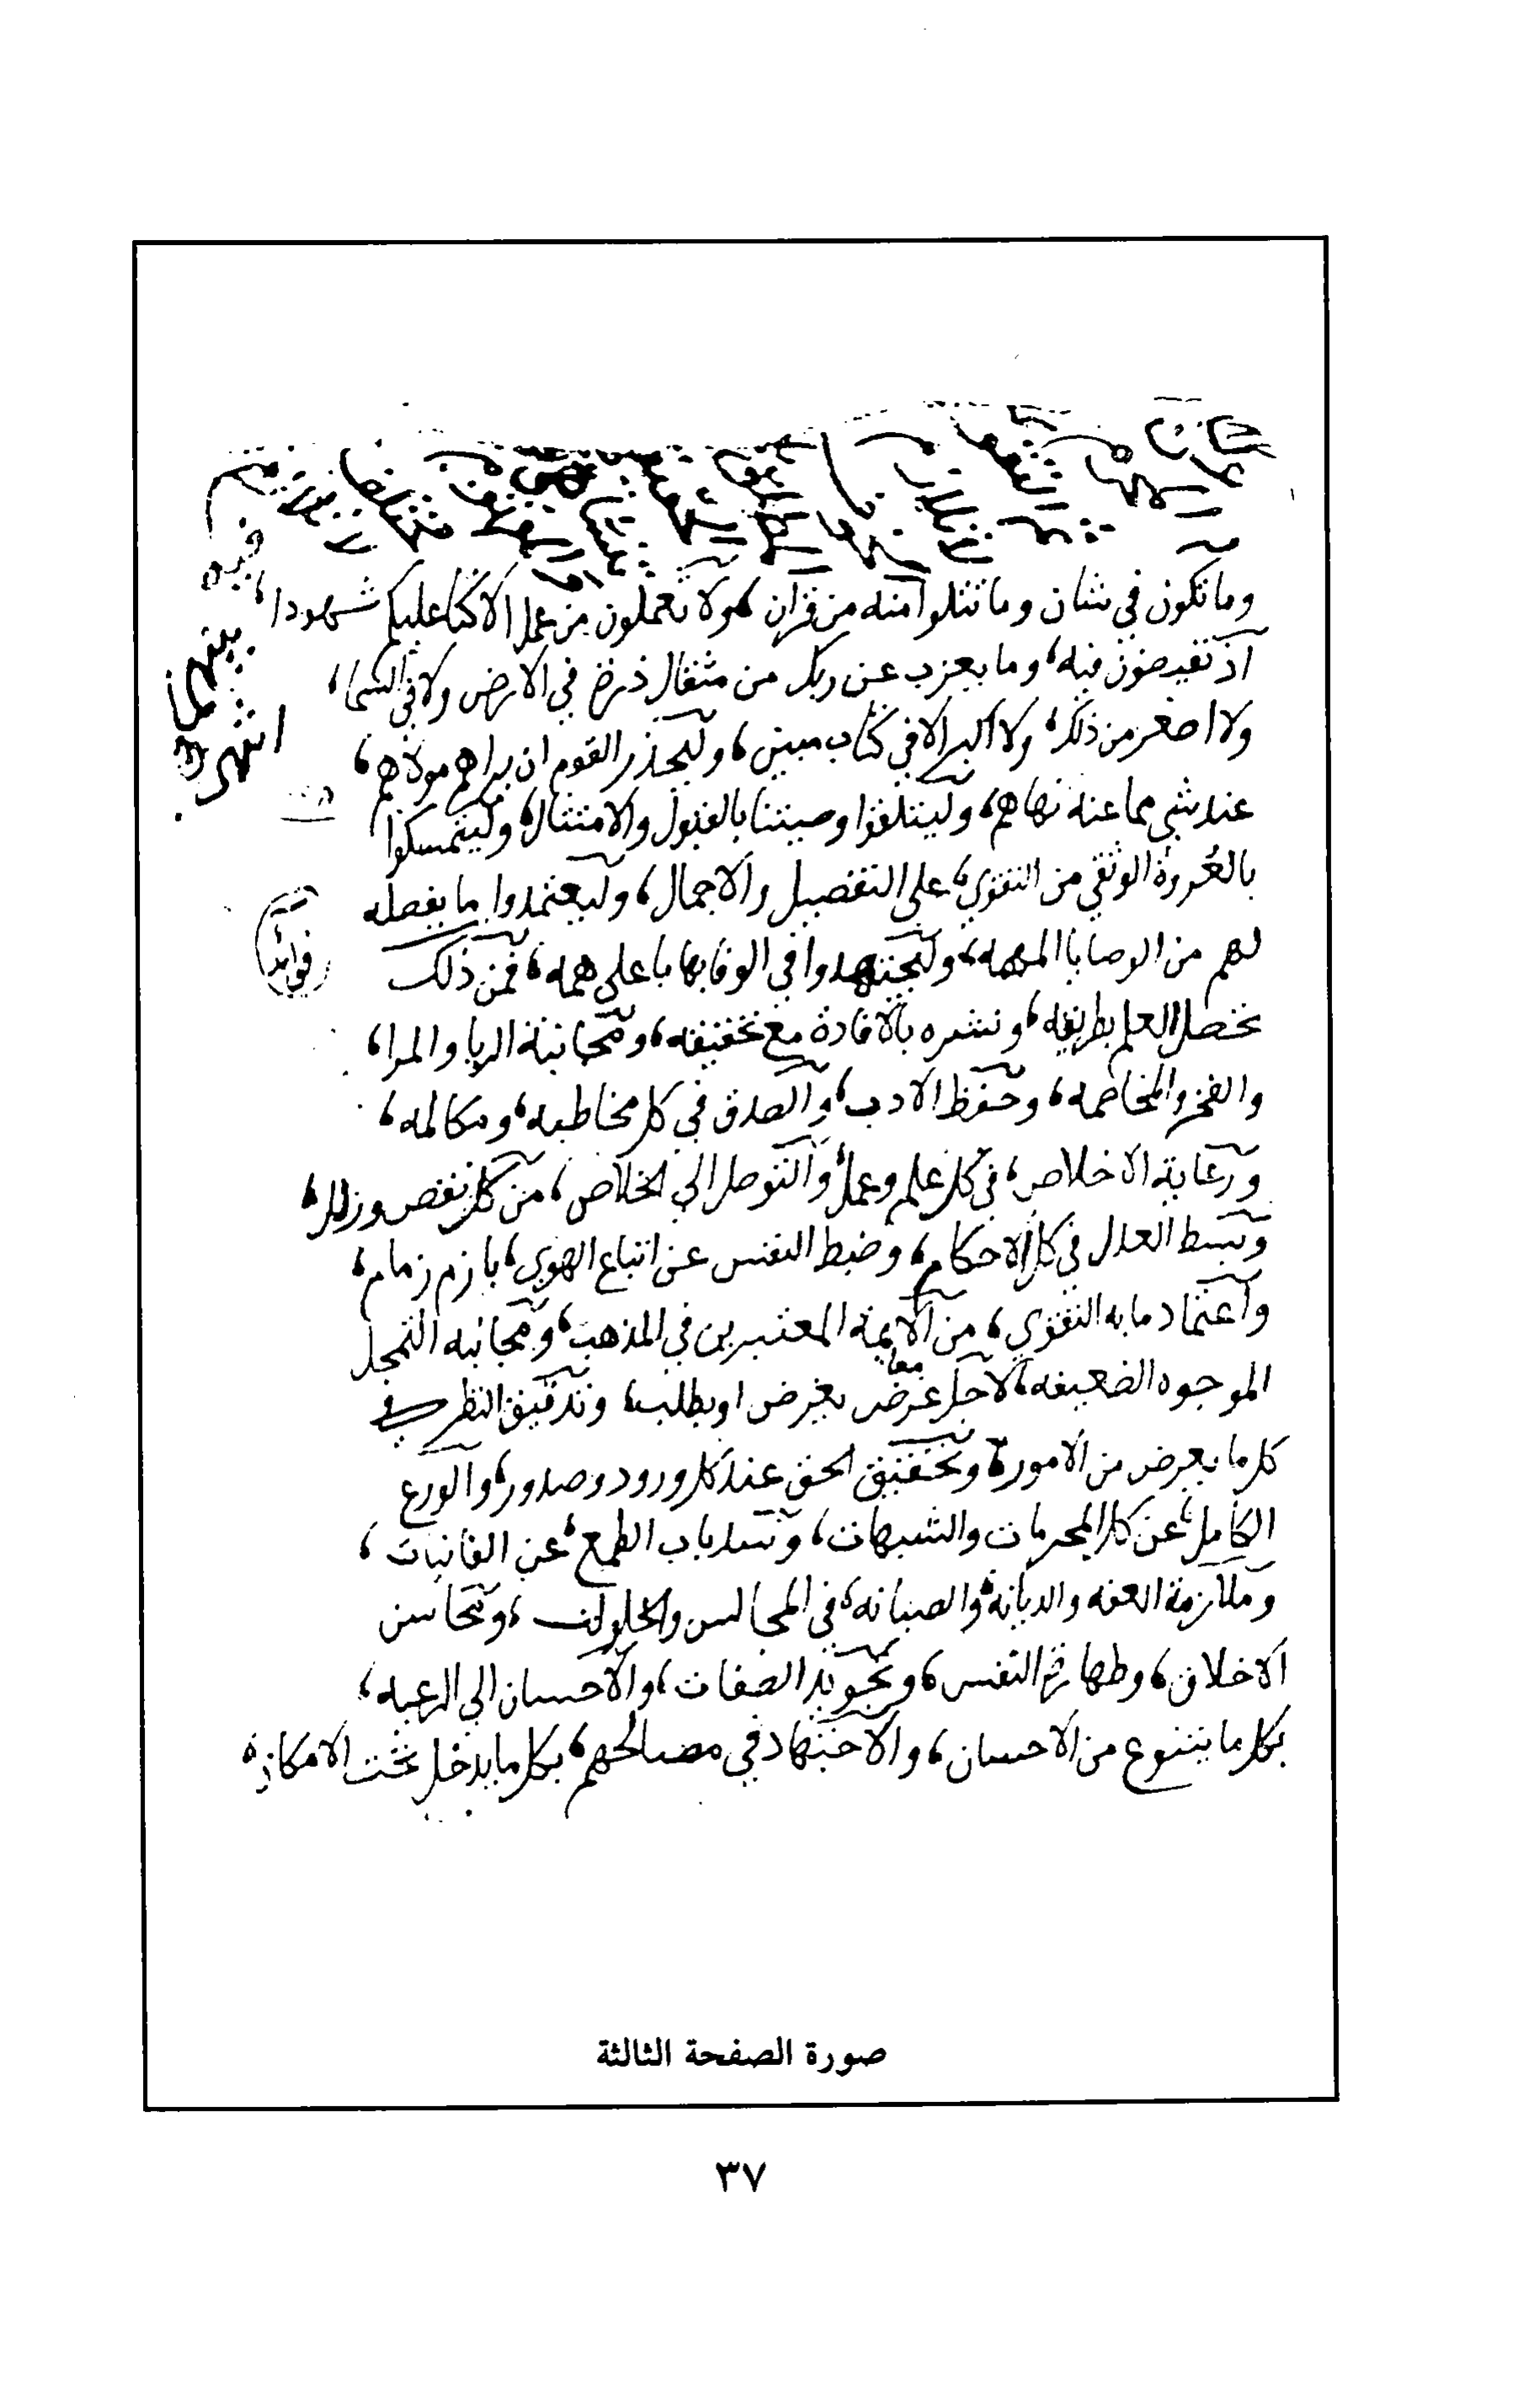 وما تكون في شان وما تتلوا منه من قرآن، ولا تعملون من عمل الا كنا عليكم شهودا،
اذ تفيضون فيه، وما يعزب عن ربك من مثقال ذرة في الارض ولا في السما،
ولا اصغر من ذلك، ولا اكبر الا في كتاب مبين، وليحذر القوم ان يراهم مولاهم،
عند شي مما عنه نهاهم، وليتلقوا وصيتنا بالقبول والامتثال، وليتمسكوا
بالعُروة الوثقي من التقوي، علي التفصيل والاجمال، وليعتمدوا ما يفصله
لهم من الوصايا المهمه، وليجتهدوا في الوفا بها باعلي همه، فمن ذلك
تحصيل العلم بطريقه، ونشره بالافادة مع تحقيقه، ومجانبة الريا والمرا،
والفخر والمخاصمه، وحفظ الادب، والصدق في كل مخاطبه، ومكالمه،
ورعاية الاخلاص، في كل علم وعمل، والتوصل الي الخلاص، من كل نقص وزلل،
وبسط العدل في كل الاحكام، وضبط النفس عن اتباع الهوي، بازم زمام،
واعتماد ما به التقوي، من الايمة المعتبرين في المذهب، ومجانبه التمحل
الموجوه الضعيفه، لاجل غرض يعرض او يطلب، وتدقيق النظر في
كل ما يعرض من الامور، وتحقيق الحق عند كل ورود وصدور، والورع
الكامل، عن كل المحرمات والشبهات، وسد باب الطمع، عن الفانيات،
وملازمة العفه والديانة، والصيانه، في المجالس والخلوات، ومحاسن
الاخلاق، وطهارة النفس، وتجويد الصفات، والاحسان الي الرعيه،
بكل ما يتنوع من الاحسان، والاجتهاد في مصالحهم، بكل ما يدخل تحت الامكان
فوائد
صورة الصفحة الثالثة
٣٧